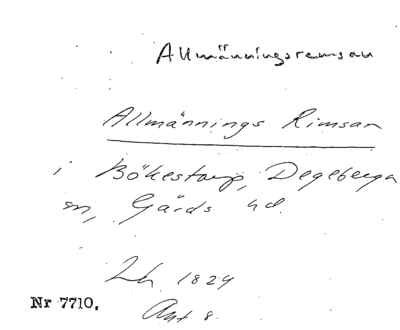 Allmänningsremsan
Allmännings Rimsan
i Bökestorp, Degeberga
sn, Gärds hd.
Lh. 1824
Nr 7710.
Akt 8.